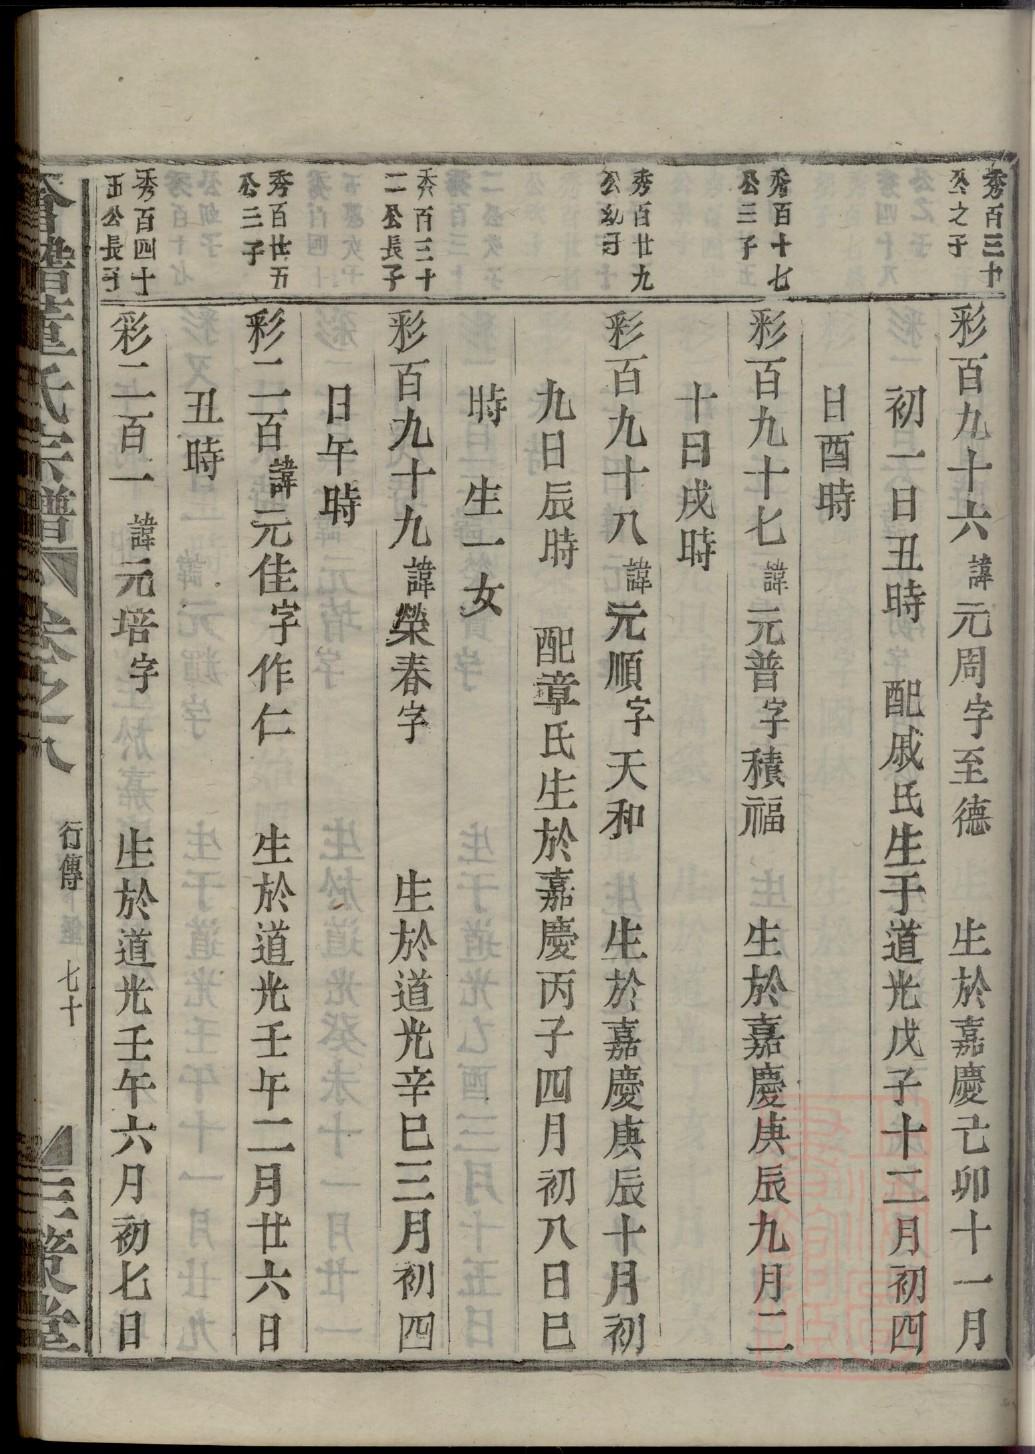 秀百三十
公之子
彩百九十六諱元周字至德 生於嘉慶己卯十一月
初一日丑時 配戚氏生于道光戊子十二月初四
日酉時
秀百十七
公三子
彩百九十七諱元普字積福 生於嘉慶庚辰九月二
十日戌時
秀百廿九
公幼子
彩百九十八諱元順字天和 生於嘉慶庚辰十月初
九日辰時 配章氏生於嘉慶丙子四月初八日巳
時 生一女
秀百三十
二公長子
彩百九十九諱榮春字 生於道光辛巳三月初四
日午時
秀百廿五
公三子
彩二百諱元佳字作仁 生於道光壬午二月廿六日
丑時
秀百四十
五公長子
彩二百一諱元培字 生於道光壬午六月初七日
會稽董氏宗譜 卷之八
行傳 七十
三策堂